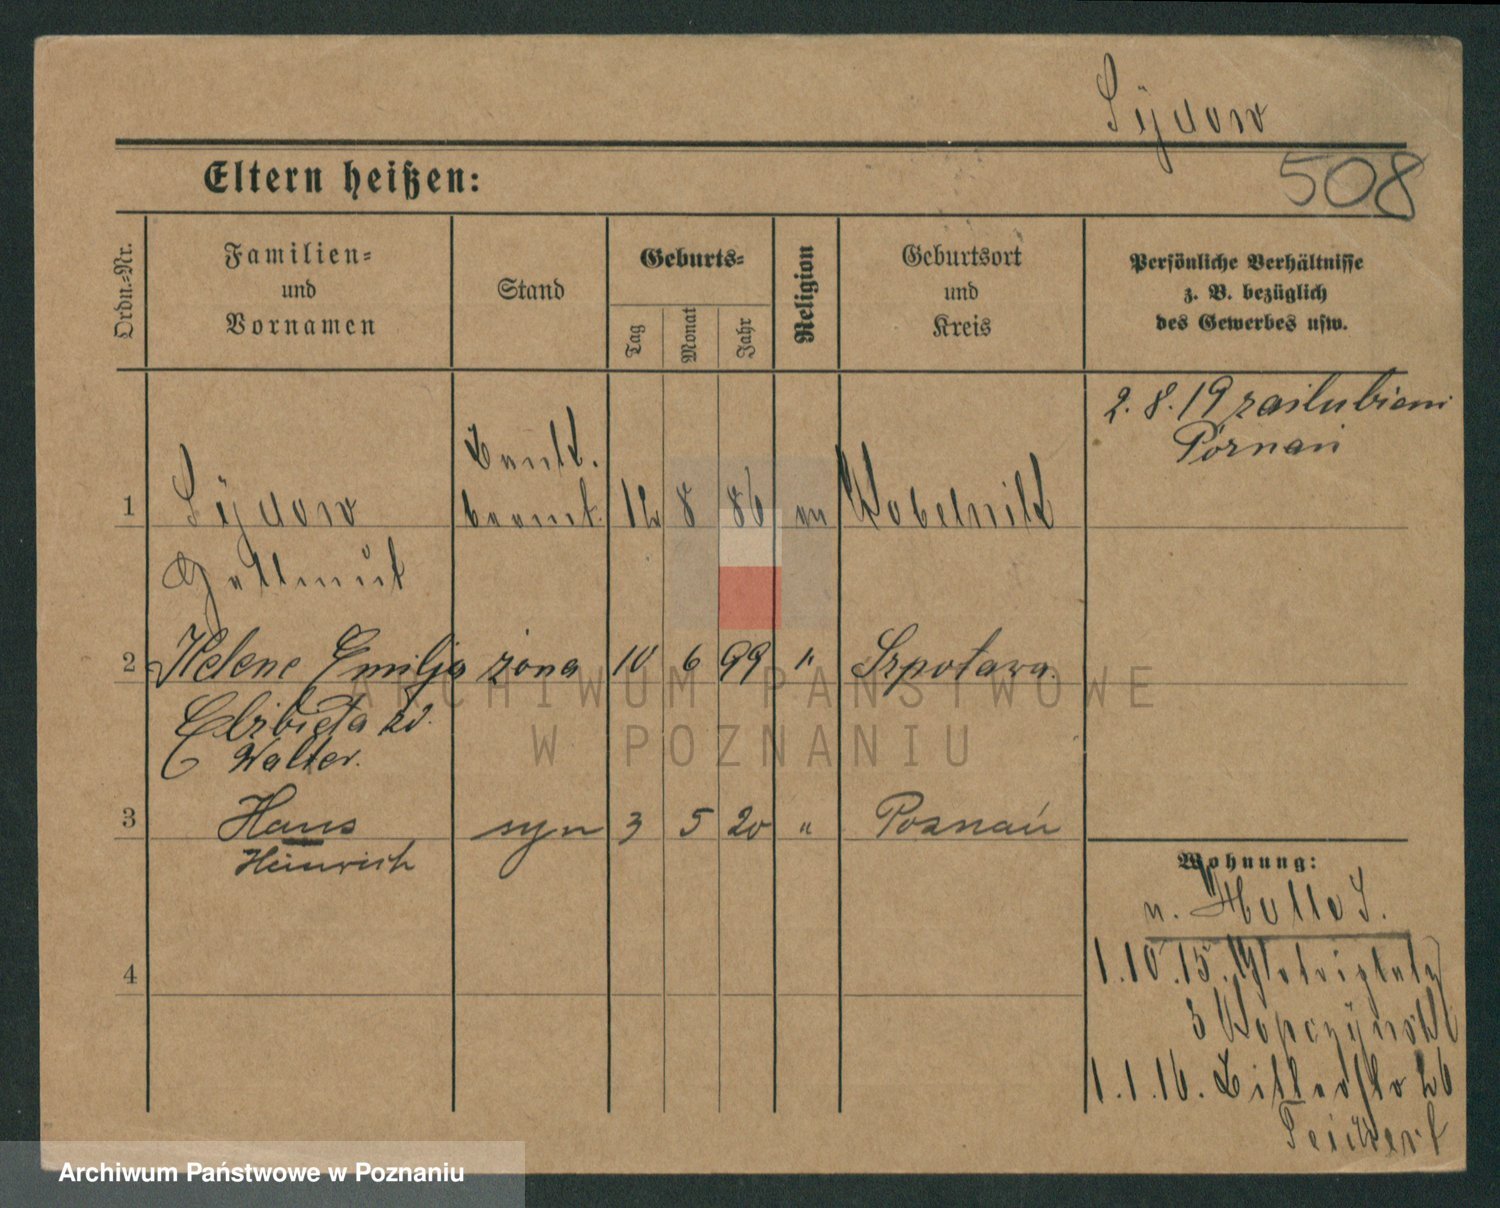 Sÿdow
508
Eltern heißen:
Ordn.-Nr.
Familien-
und
Vornamen
Stand
Geburts-
Tag
Monat
Jahr
Religion
Geburtsort
und
Kreis
Persönliche Verhältnisse
z. B. bezüglich
des Gewerbes usw.
2. 8. 19 zaślubieni
Poznań
1 Sÿdow
Hellmut
Bank-
beamt. 12 8 86 Kobelnitz
2 Helene Emilja żona 10 6 99 " Szpotawa
Elżbieta zd.
Walter.
3 Hans syn 3 5 20 " Poznań
Heinrich
4
Wohnung:
n.
1.10.15.
3
1.1.16. 26
Teichert
ARCHIWUM PAŃSTWOWE
W POZNANIU
Archiwum Państwowe w Poznaniu